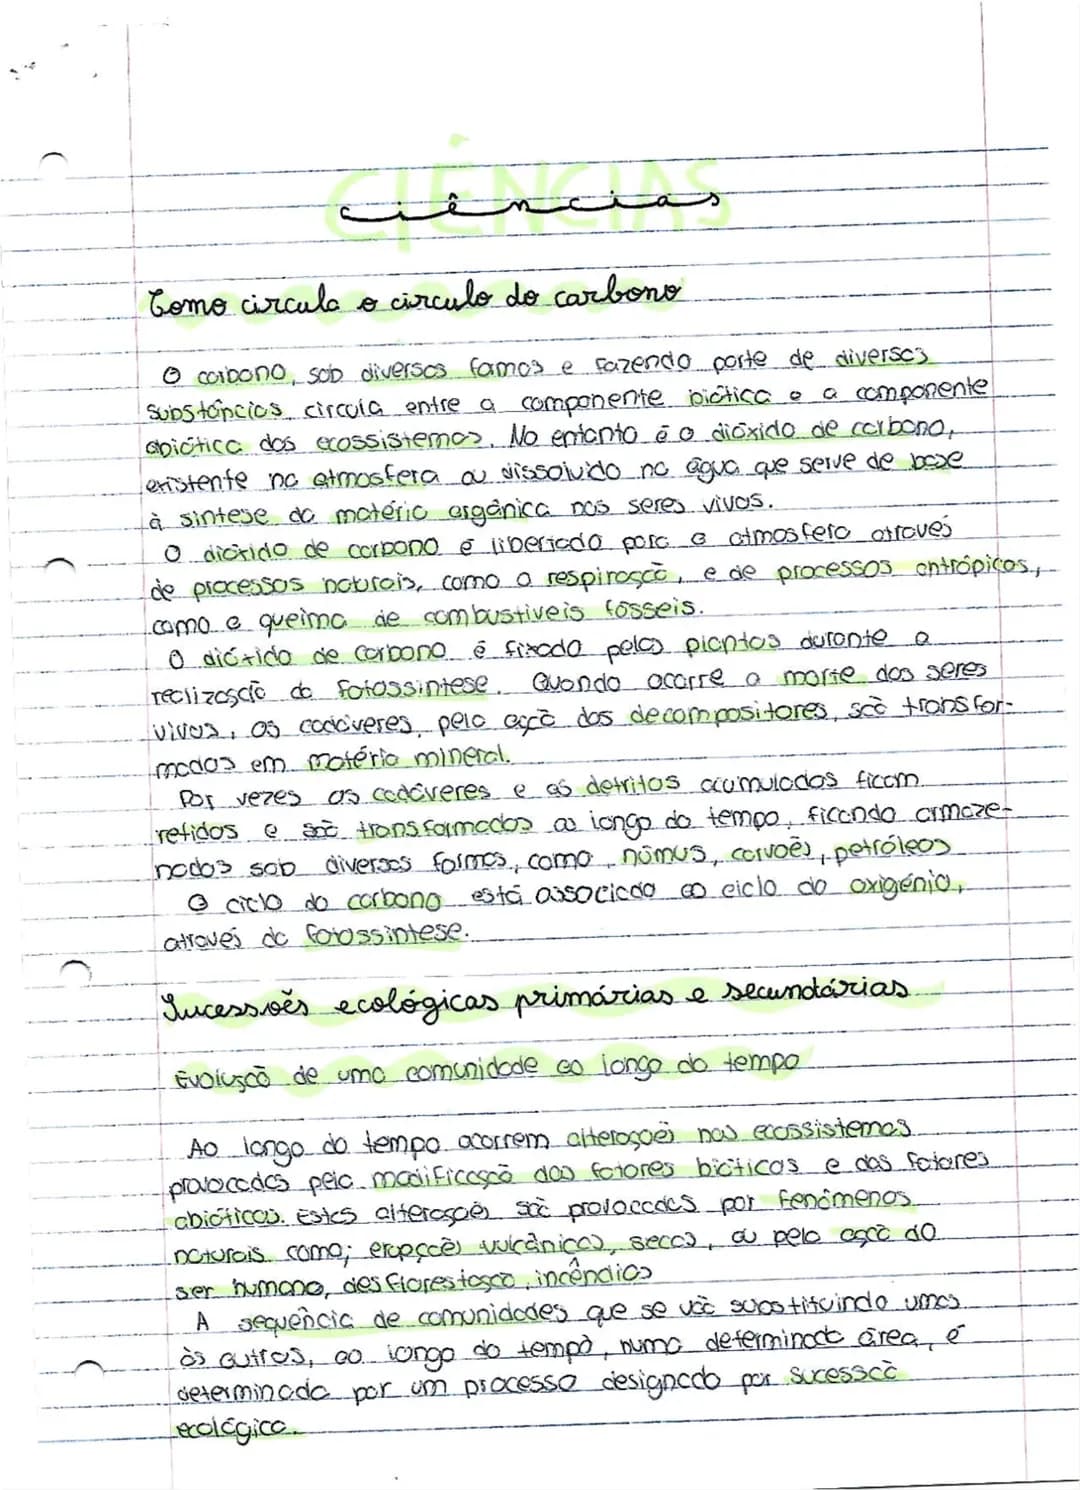 CIÊNCIAS
ciências
Como circula o circulo do carbono
O carbono, sob diversas formas e fazendo parte de diversas
substâncias circula entre a componente biótica e a componente
abiótica dos ecossistemas. No entanto é o dióxido de carbono,
existente na atmosfera ou dissolvido na água que serve de base
à sintese da matéria orgânica nos seres vivos.
O dióxido de carbono é libertado para a atmosfera através
de processos naturais, como a respiração, e de processos antrópicos,
como a queima de combustiveis fósseis.
O dióxido de carbono é fixado pelas plantas durante a
realização da fotossintese. Quando ocorre a morte dos seres
vivos, os cadáveres, pela ação dos decompositores, são transfor-
mados em matéria mineral.
Por vezes os cadáveres e os detritos acumulados ficam
retidos e são transformados ao longo do tempo, ficando armaze-
nados sob diversas formas, como, húmus, carvões, petróleos
O ciclo do carbono está associado ao ciclo do oxigénio,
através da fotossintese.
Sucessões ecológicas primárias e secundárias
Evolução de uma comunidade ao longo do tempo
Ao longo do tempo ocorrem alterações nos ecossistemas
provocadas pela modificação dos fatores bióticos e dos fatores
abióticos. Estas alterações são provocadas por fenómenos
naturais como; erupções vulcânicas, secas, ou pela ação do
ser humano, desflorestação, incêndios
A sequência de comunidades que se vão substituindo umas
às outras, ao longo do tempo, numa determinada área, é
determinada por um processo designado por sucessão
ecológica.